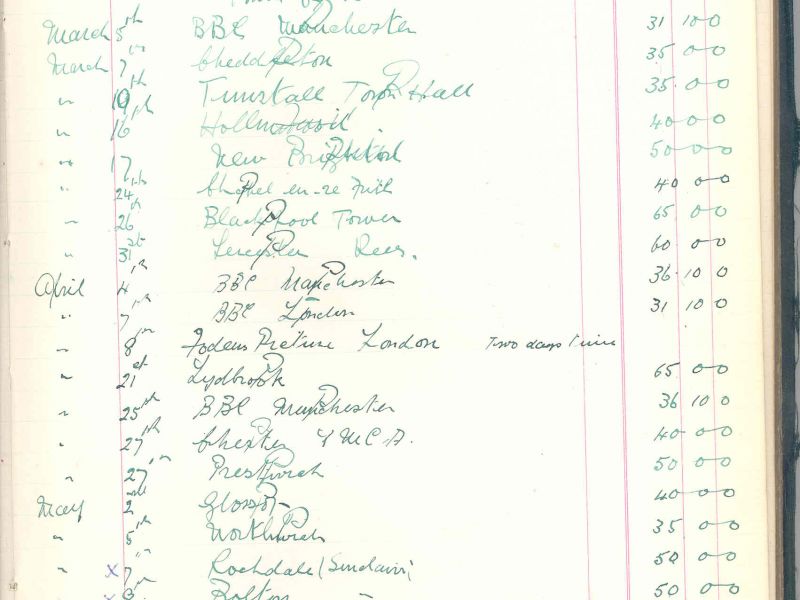 March 5th BBC Manchester 31 10 0
March 7th Cheddleton 35 0 0
" 10th Tunstall Town Hall 35 0 0
" 16th 40 0 0
" 17 New Brighton 50 0 0
" 24th Chapel-en-le Frith 40 0 0
" 26th Blackpool Tower 65 0 0
" 31st Leicester Rees. 60 0 0
April 4th BBC Manchester 36 10 0
" 7th BBC London 31 10 0
" 8th Fodens Picture London Two days time
" 21st Lydbrook 65 0 0
" 25th BBC Manchester 36 10 0
" 27th Chester Y.M.C.A. 40 0 0
" 27th Prestwich 50 0 0
May 2nd Glossop 40 0 0
" 5th 35 0 0
" x 7th Rochdale (Sinclair) 50 0 0
" x Bolton " 50 0 0